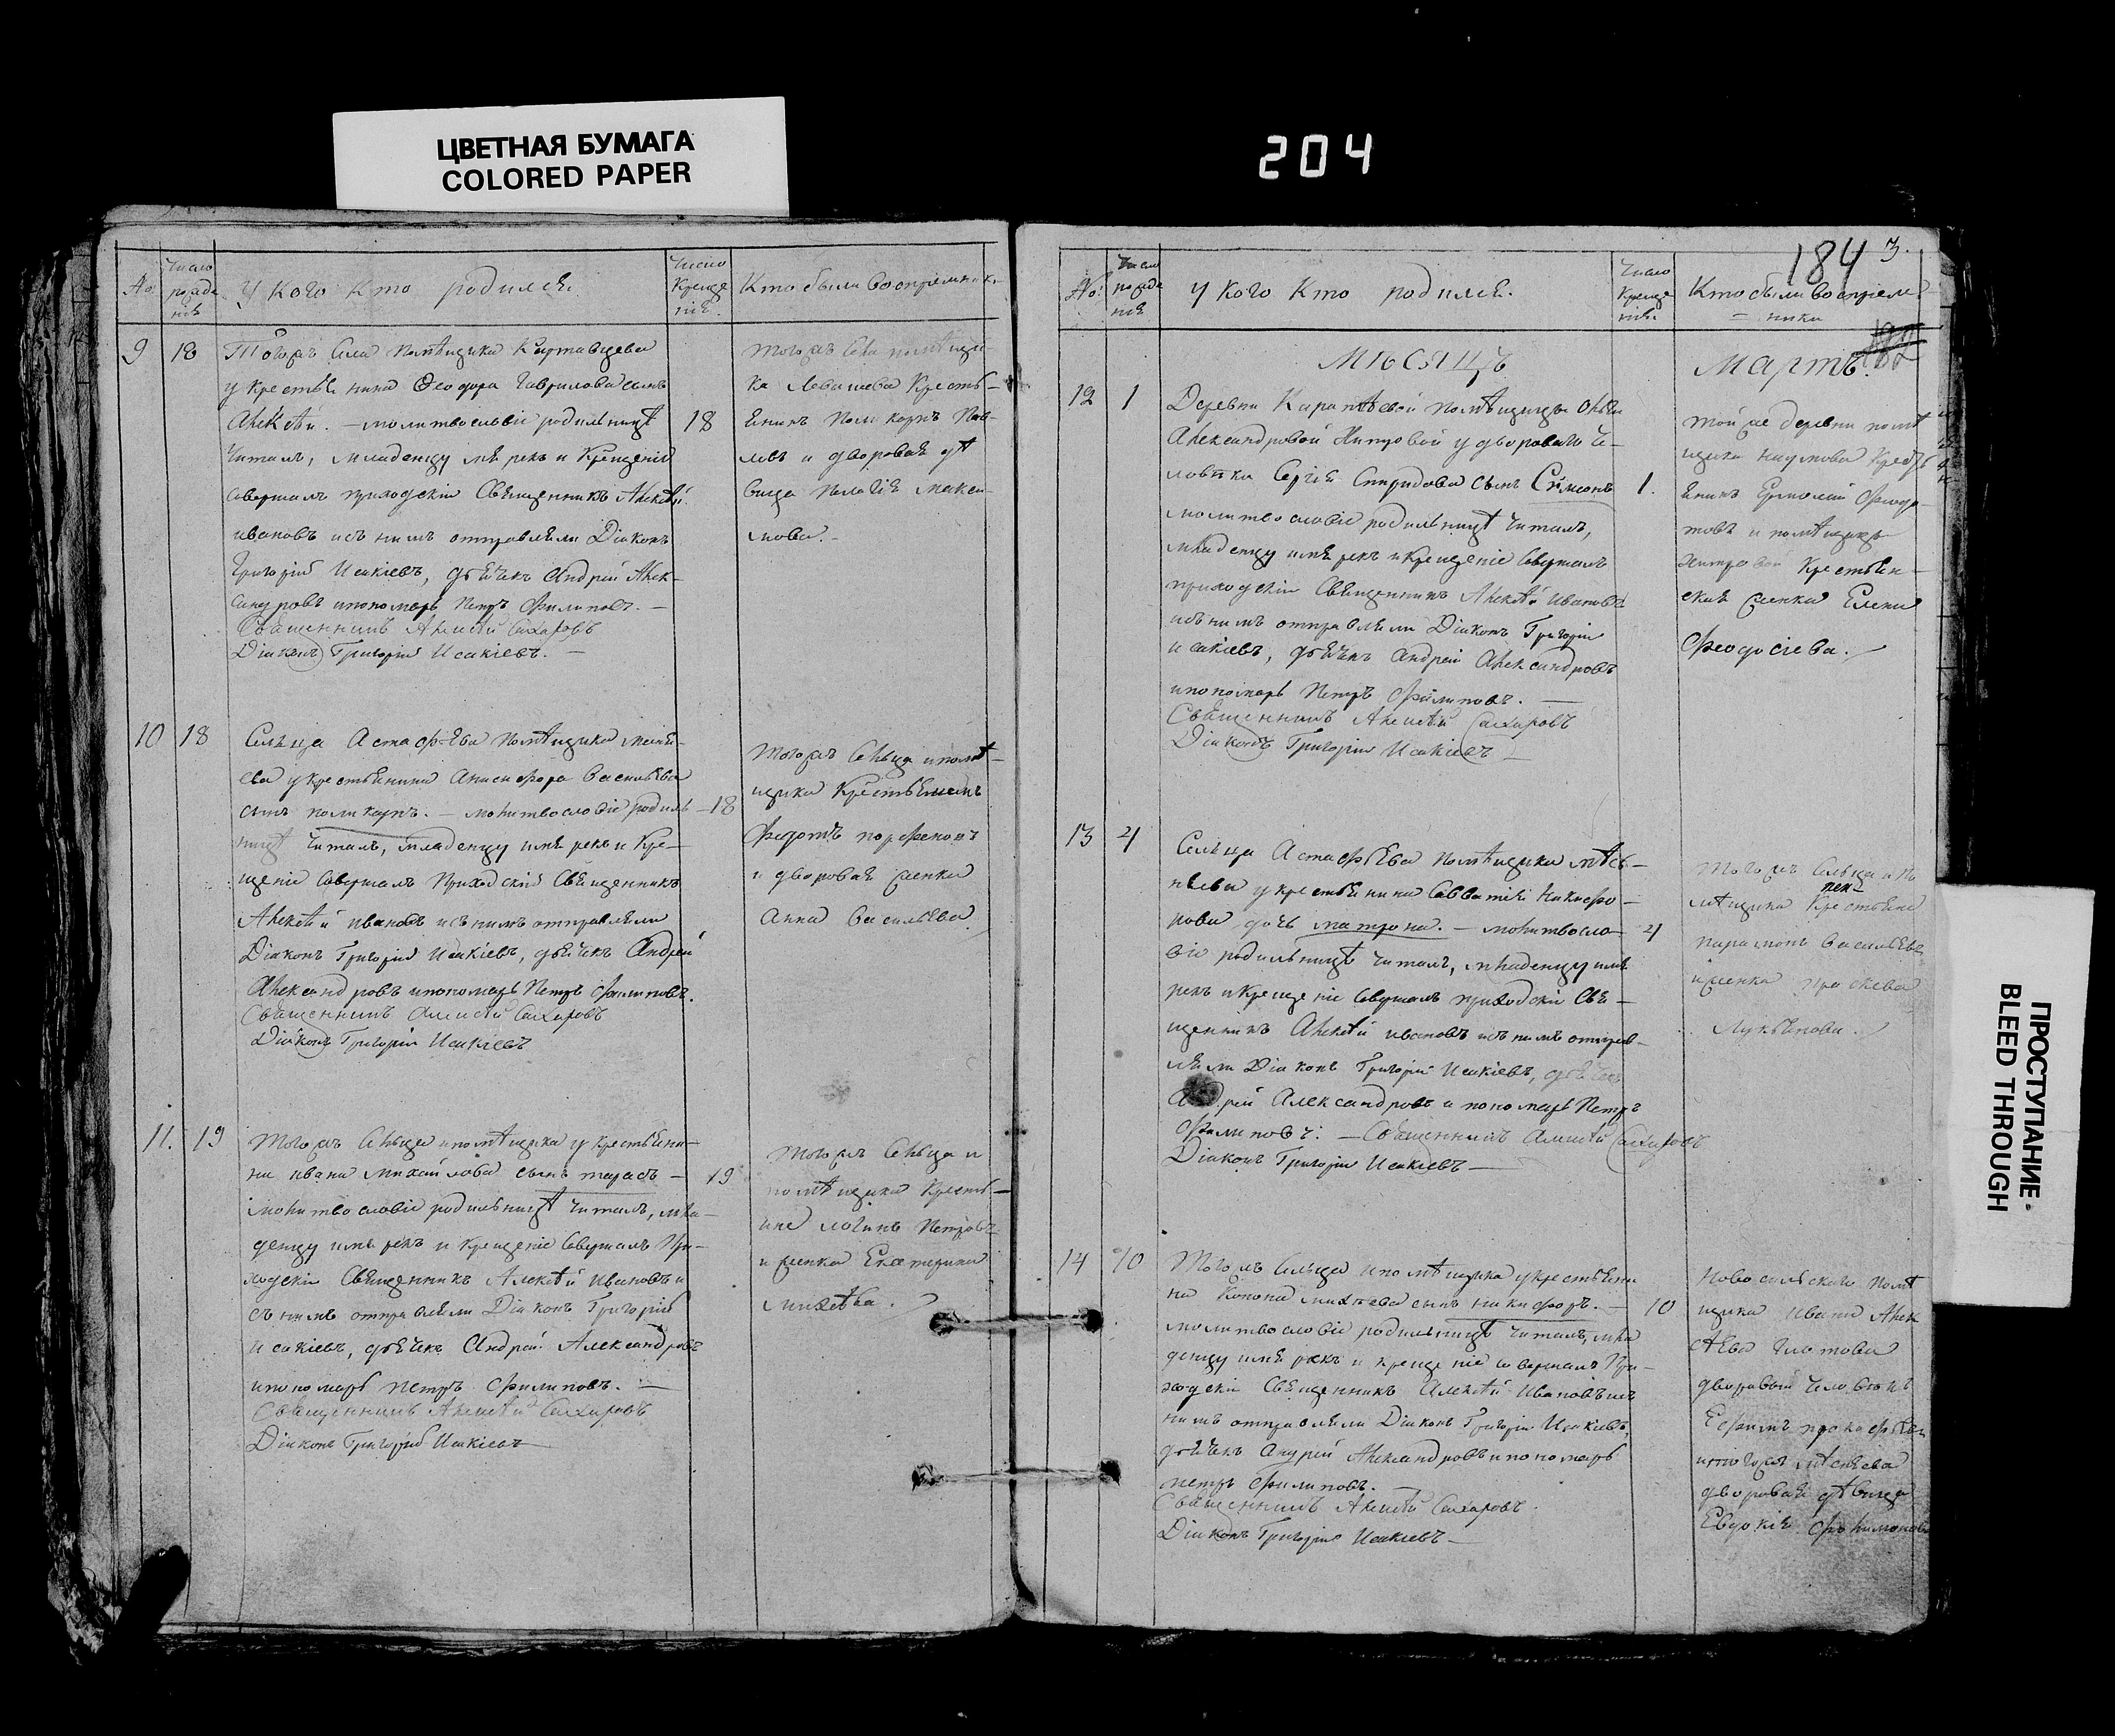 ЦВЕТНАЯ БУМАГА
COLORED PAPER
204
184 3.
№
Число рожденія
У кого кто родился.
Число крещенія.
Кто были воспріемники
9 18
Тогожъ села помѣщика Картавцева
у крестьянина Ѳеодора Гаврилова сынъ
Алексѣй. — молитвословіе родильницѣ
читалъ, младенцу имя рекъ и крещеніе
совершалъ приходскій священникъ Алексѣй
ивановъ исъ нимъ отправляли Діаконъ
Григорій Исакіевъ, дьячекъ Андрей Алек-
сандровъ ипономарь Петръ Филиповъ. —
Священникъ Алексѣй Сахаровъ
Діаконъ Григорій Исакіевъ. —
18
тогожъ села помѣщи-
ка Левашева кресть-
янинъ Поликарпъ Пав-
ловъ и дворовая дѣ
вица Пелагія макси-
мова. —
10 18
Сельца Астафьева помѣщика
у крестьянина Анисифора Васильева
сынъ поликарпъ. — молитвословіе родиль-
ницѣ читалъ, младенцу имя рекъ и кре-
щеніе совершалъ приходскій священникъ
Алексѣй ивановъ исъ нимъ отправляли
Діаконъ Григорій Исакіевъ, дьячекъ Андрей
Александровъ ипономарь Петръ Филиповъ.
Священникъ Алексѣй Сахаровъ
Діаконъ Григорій Исакіевъ
18
тогожъ сельца ипомѣ-
щика крестьянинъ
Федотъ парфеновъ
и дворовая женка
Анна Васильева
11. 19
Тогожъ сельца ипомѣщика у крестьяни-
на ивана михайлова сынъ тарасъ —
молитвословіе родильницѣ читалъ, мла-
денцу имя рекъ и крещеніе совершалъ при-
ходскій священникъ Алексѣй Ивановъ и
съ нимъ отправляли Діаконъ Григорій
Исакіевъ, дьячекъ Андрей Александровъ
ипономарь петръ Филиповъ. —
Священникъ Алексѣй Сахаровъ
Діаконъ Григорій Исакіевъ
19
тогожъ сельца и
помѣщика кресть-
логинъ Петровъ
и женка Екатерина
михѣева.
№
Число рожденія
у кого кто родился.
Число крещенія.
Кто были воспріем-
ники
Мѣсяцъ Мартъ.
12 1
Деревни помѣщицы
Александровой Хитровой у двороваго че-
ловѣка Сергѣя Спиридова сынъ Симеонъ
молитвословіе родильницѣ читалъ,
младенцу имя рекъ икрещеніе совершалъ
приходскій священникъ Алексѣй Ивановъ
исъ нимъ отправляли Діаконъ Григорій
исакіевъ, дьячекъ Андрей Александровъ
ипономарь Петръ Филиповъ. —
Священникъ Алексѣй Сахаровъ
Діаконъ Григорій Исакіевъ —
1.
той же деревни помѣ
щика наумова кресть
янинъ Ермолай
и помѣщицы
хитровой крестьян-
ская женка Елена
Феодосіева.
13 4
Сельца Астафьева помѣщика
у крестьянина Савватія Никифо-
рова дочь матрона. — молитвосло-
віе родильницѣ читалъ, младенцу имя
рекъ икрещеніе совершалъ приходскій свя-
щенникъ Алексѣй ивановъ исъ нимъ отправ-
ляли Діаконъ Григорій Исакіевъ, дьячекъ
Андрей Александровъ и пономарь Петръ
Филиповъ. — Священникъ Алексѣй Сахаровъ
Діаконъ Григорій Исакіевъ —
4
тогожъ сельца и по
мѣщика
парамонъ Васильевъ
иженка праскева
Лукьянова.
14 10
Тогожъ сельца ипомѣщика укрестьяни
на Конона михѣева сынъ никифоръ. —
молитвословіе родильницѣ читалъ, мла
денцу имя рекъ и крещеніе совершалъ при-
ходскій священникъ Алексѣй Ивановъ исъ
нимъ отправляли Діаконъ Григорій Исакіевъ,
дьячекъ Андрей Александровъ ипономарь
петръ Филиповъ. —
Священникъ Алексѣй Сахаровъ
Діаконъ Григорій Исакіевъ —
10
помѣ
щика ивана Алек
сѣева
дворовый человѣкъ
Ефимъ прокофьевъ
дворовая дѣвица
Евдокія
ПРОСТУПАНИЕ
BLEED THROUGH